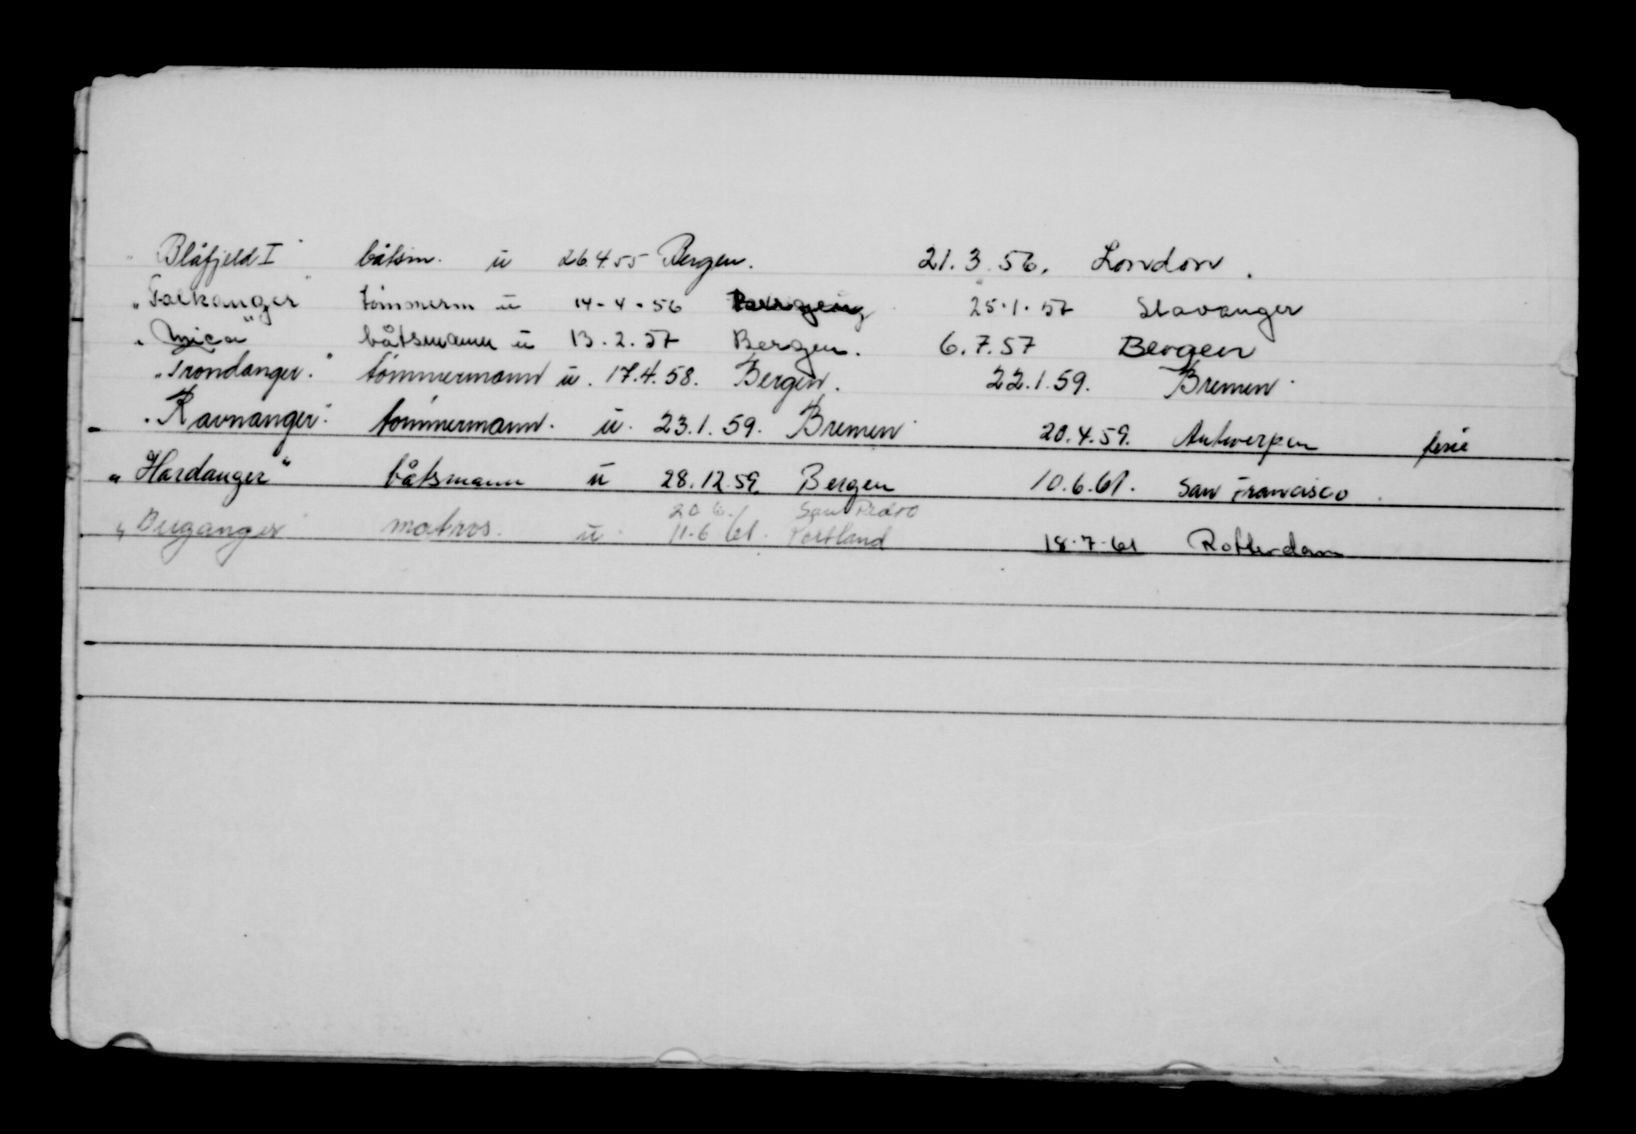 "Blåfjeld I" båtsm. ü 26.4.55 Bergen. 21.3.56. London.
"Falkanger" tömmerm ü 14-4-56 25.1.57 Stavanger
"Mica" båtsmann ü 13.2.57 Bergen. 6.7.57 Bergen
"Trondanger." tömmermann ü. 17.4.58. Bergen. 22.1.59. Bremen.
"Ravnanger." tömmermann. ü. 23.1.59. Bremen 20.4.59. Antwerpen ferie
"Hardanger" båtsmann ü 28.12.59 Bergen 10.6.61. San Francisco.
20.6. San Pedro
matros. ü. 11-6/61. Portland 18-7-61 Rotterdam